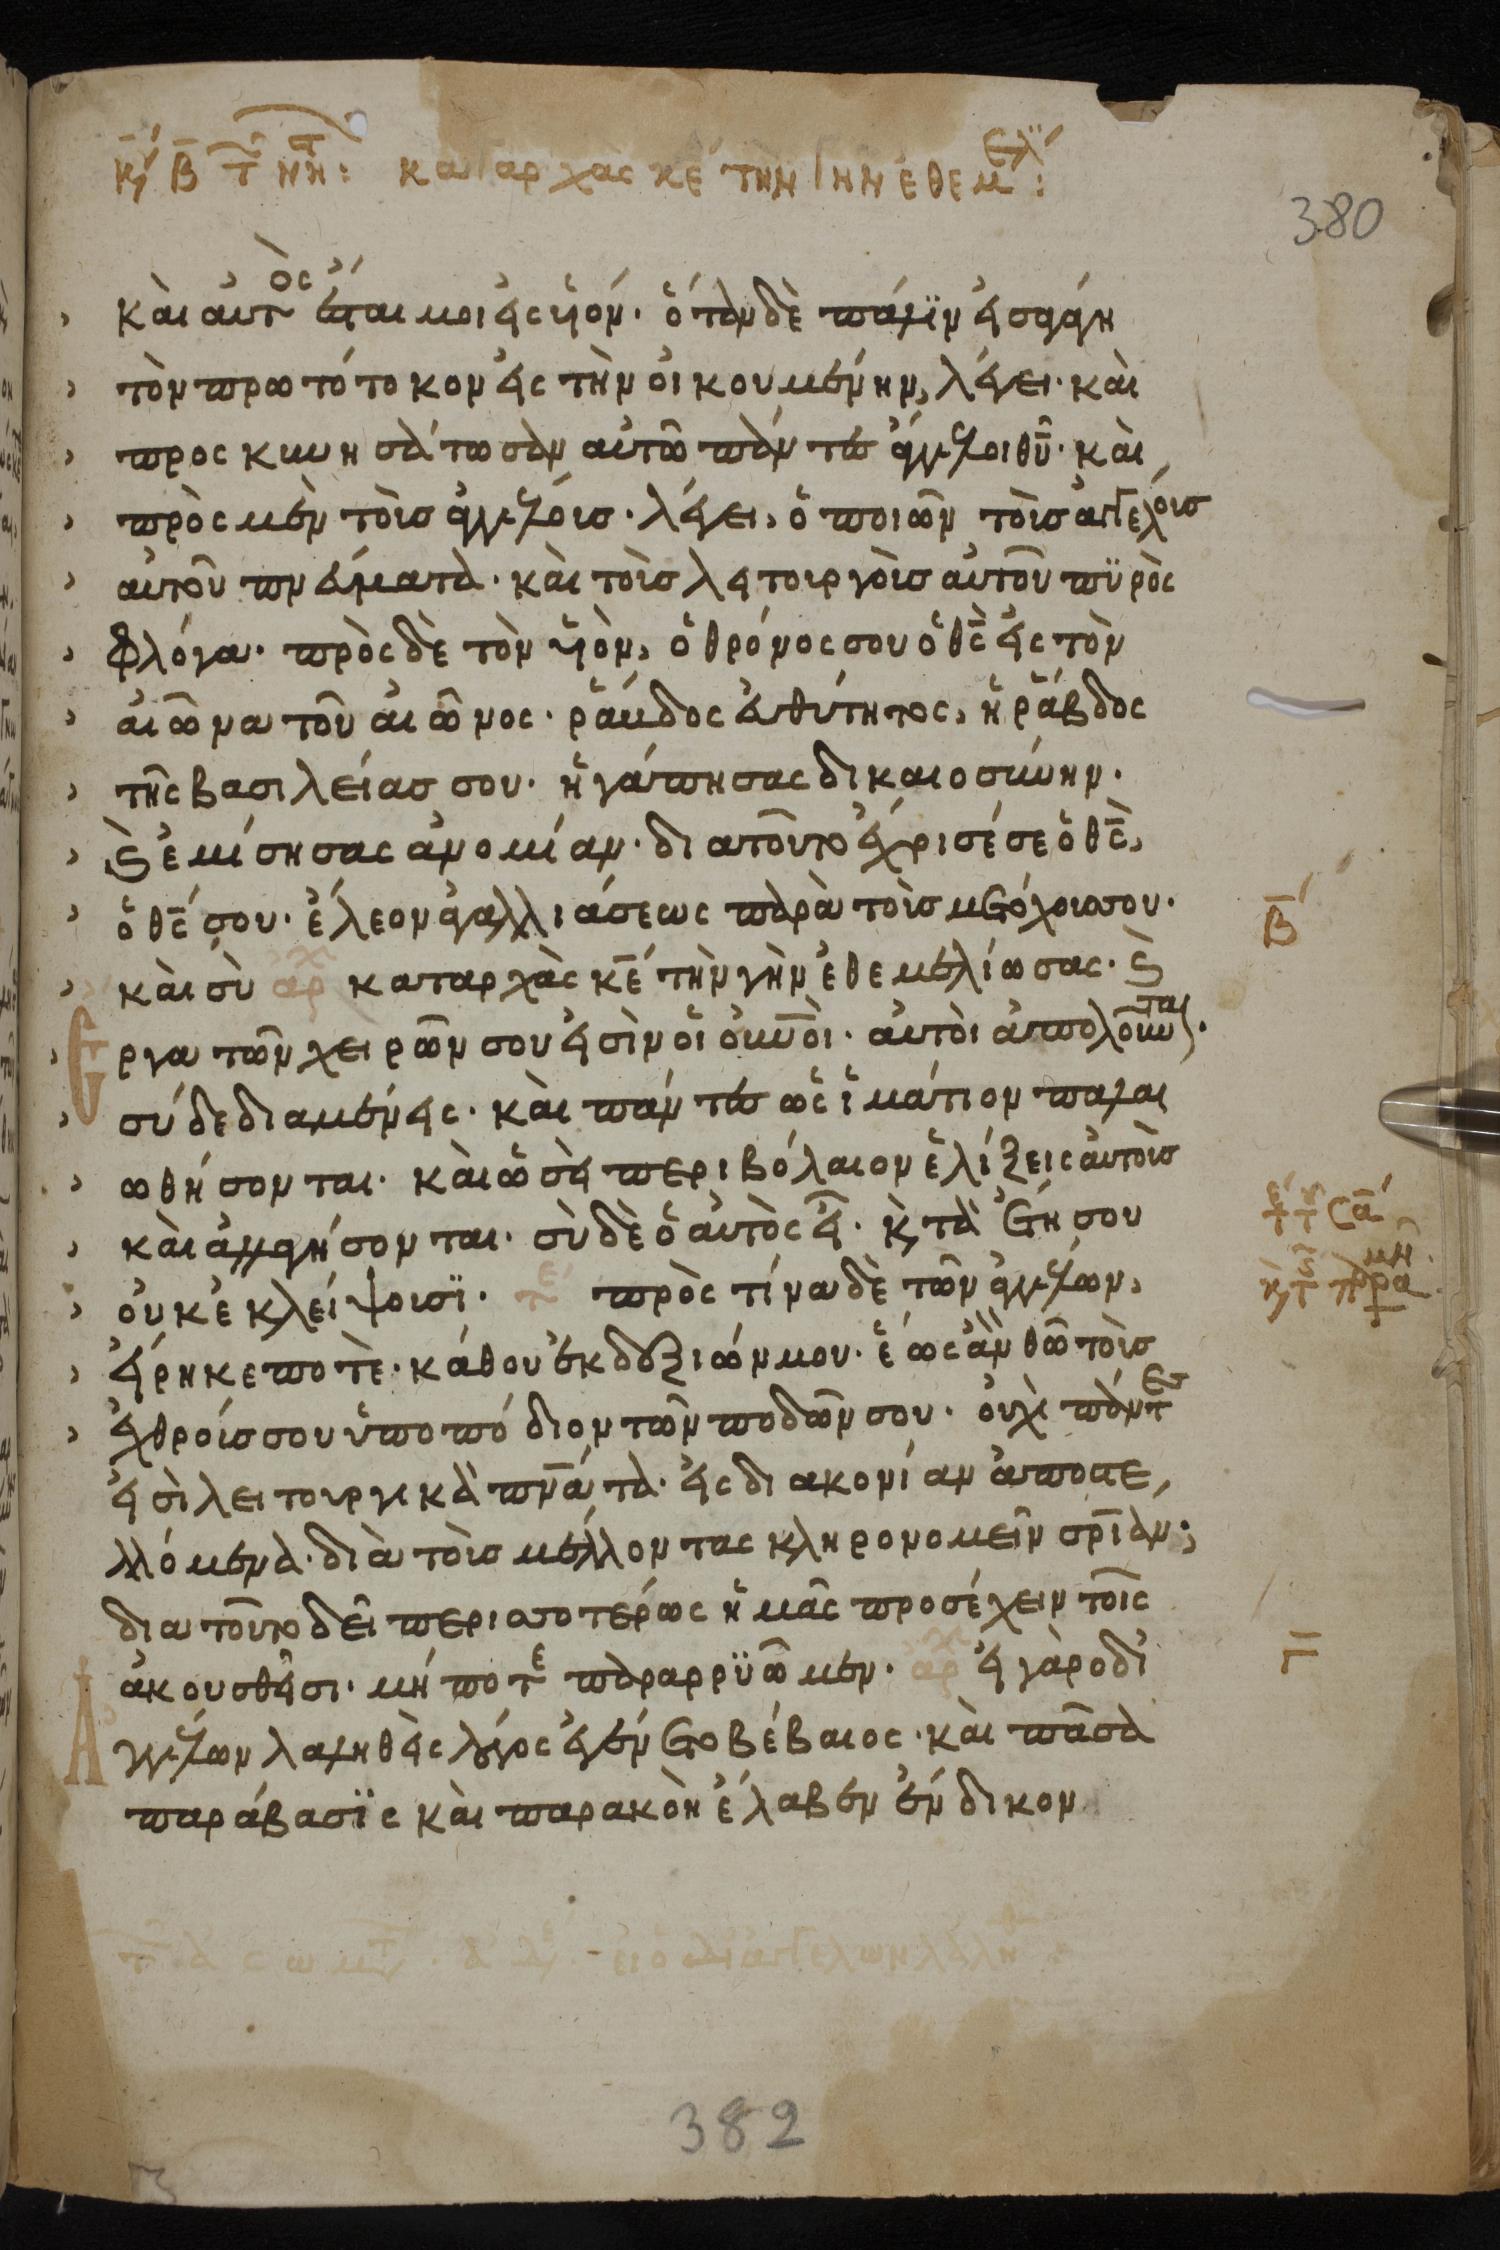 κ, Β τ νη: κα ταρ χὰς κε τὴν γην ἐθεμελ:
380
κὰι ἀυτὸς ἔσται μοι εἰς ὑόν· ὅταν δὲ πάλϊν εἰσαγάγη
τὸν πρωτότοκον εἰς τὴν ὀικουμένην, λέγει· κὰι
προσκυνησάτωσαν αὐτῶ πάντες ἄγγελοι θυ· κὰι
πρὸς μὲν τὸυς ἀγγέλους· λέγει, ὁ ποιῶν τὸυς ἀγγέλους
αὐτοῦ πνεύματα· κὰι τοὺς λειτουργοὺς αὐτοῦ πϋρὸς
φλόγα· πρὸς δὲ τὸν ὑὸν, ὁ θρόνος σου ὁ θς εἰς τὸν
ἀιῶνα τοῦ ἀιῶνος· ῥάυδος ἐυθύτητος, ἡ ῥάβδος
τῆς βασιλείας σου· ἠγάπησας δικαιοσύνην·
ϗ ἐμίσησας ἀνομίαν· διατοῦτο ἔχρισέ σε ὁ θς,
ὁ θς σου· ἔλεον ἀγαλλιάσεως παρὰ τοὺς μετόχους σου·
Β
κὰι σὺ αρχ καταρχὰς κε τὴν γὴν ἐθεμελίωσας· ϗ
Ἔργα τῶν χειρῶν σου εἰσὶν ὁι ουνοὶ· ἀυτὸι ἀπολοῦνται·
σύ δε διαμένεις· κὰι πάντες ὡς ἱμάτιον παλαι
ωθήσονται· κὰι ὡσεὶ περιβόλαιον ἑλίξεις ἀυτοὺς
κὰι ἀλλαγήσονται· σὺ δὲ ὁ αὐτὸς εἶ· κ, τὰ ἔτη σου
ὀυκ ἐκλείψουσϊ· τε πρὸς τίνα δὲ τῶν ἀγγέλων,
ἔιρηκε ποτὲ· κάθου ἐκ δεξιῶν μου· ἕως ἂν θῶ τοὺς
ἐχθρούς σου ὑποπόδιον τῶν ποδῶν σου· ὀυχὶ πάντες
εἰσὶ λειτουργικὰ πνατα· εἰς διακονίαν ἀποστε,
λλόμενα· διὰ τοὺς μέλλοντας κληρονομεῖν σρίαν;
δια τοῦτο δεῖ περισσοτέρως ἡμᾶς προσέχειν τοῖς
Γ
ἀκουσθεῖσι· μήποτε παραρρϋῶμεν· αρχ εἰ γὰρ ο δἰ
Ἀγγέλων λαληθεὶς λόγος ἐγένετο βέβαιος· κὰι πᾶσα
παράβασϊς κὰι παρακὸη ἔλαβεν ἔνδικον
382